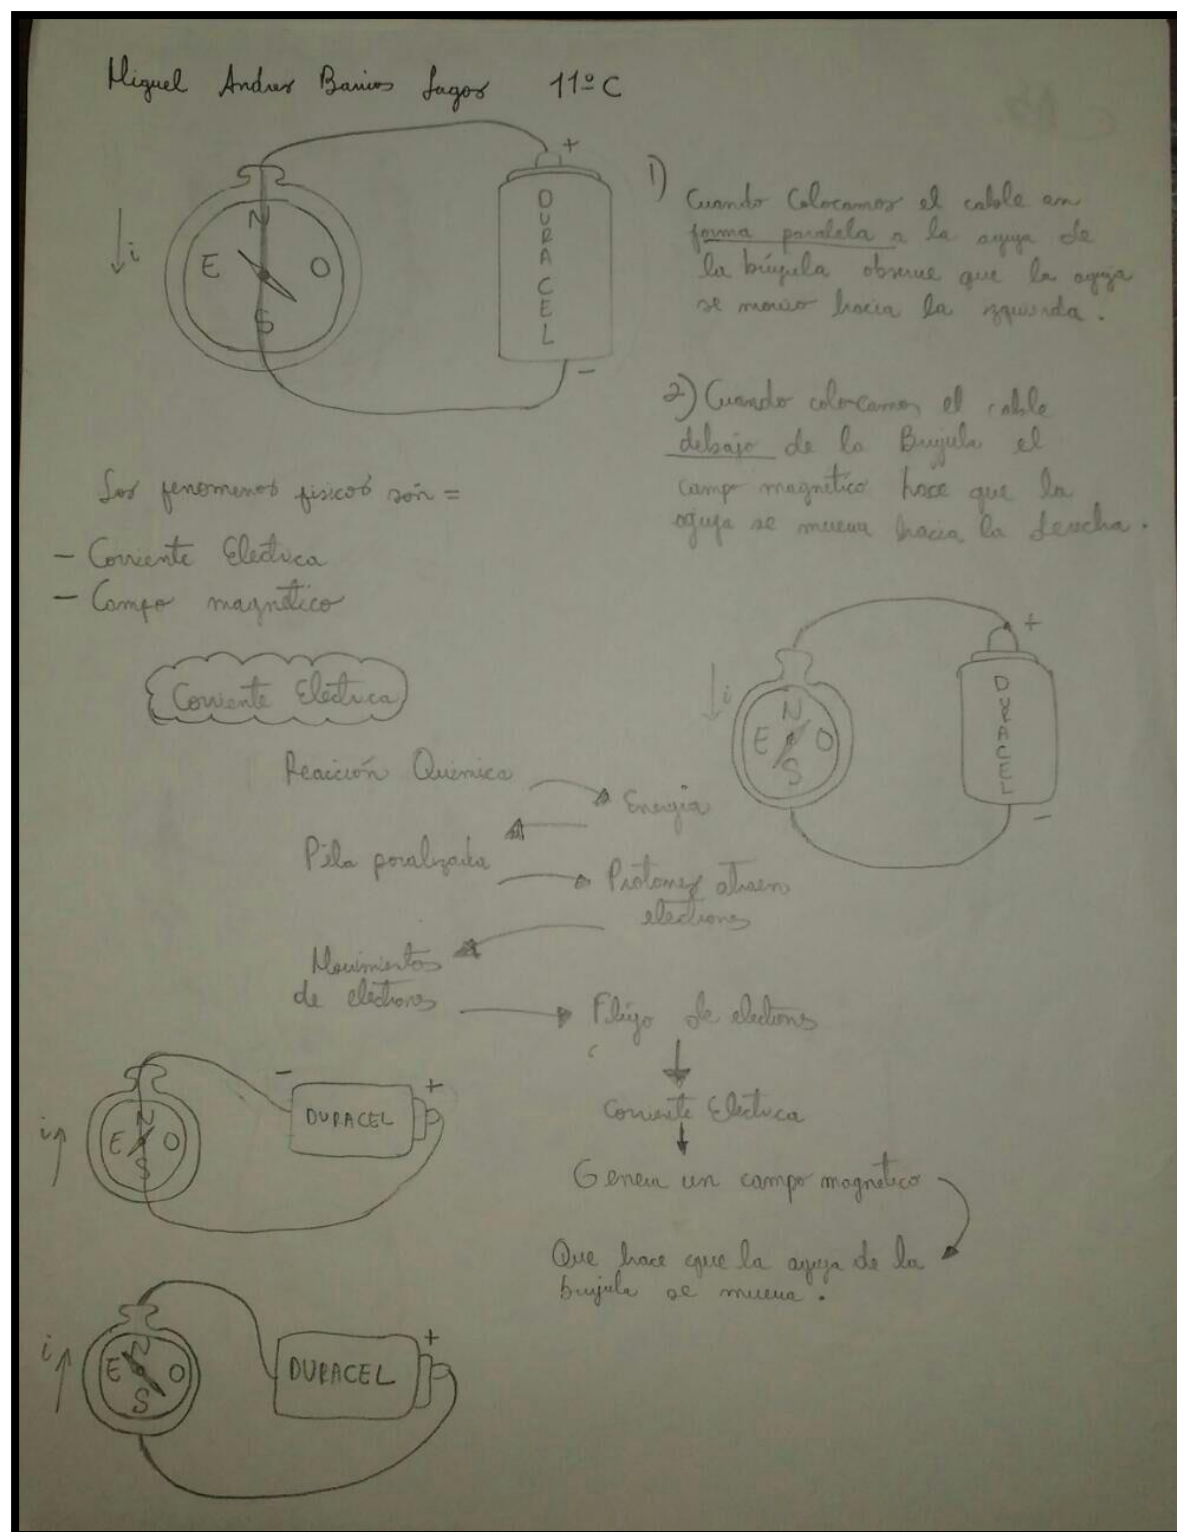 Miguel Andres Barrios Lagos 11º C
+
DURACEL
-
i
N
E O
S
1) Cuando Colocamos el cable en
forma paralela a la aguja de
la brújula observe que la aguja
se movio hacia la izquierda.
2) Cuando colocamos el cable
debajo de la Brujula el
campo magnetico hace que la
aguja se mueva hacia la derecha.
Los fenomenos fisicos són =
- Corriente Electrica
- Campo magnético
Corriente Electrica
i
N
E O
S
+
DURACEL
-
Reacción Quimica
Energia
Pila poralizada
Protones atraen
electrones
Movimientos
de electrones
Flujo de electrons
Corriente Electrica
Genera un campo magnetico
Que hace que la aguja de la
brujula se mueva.
i
N
E O
S
- +
DURACEL
i
N
E O
S
+
DURACEL